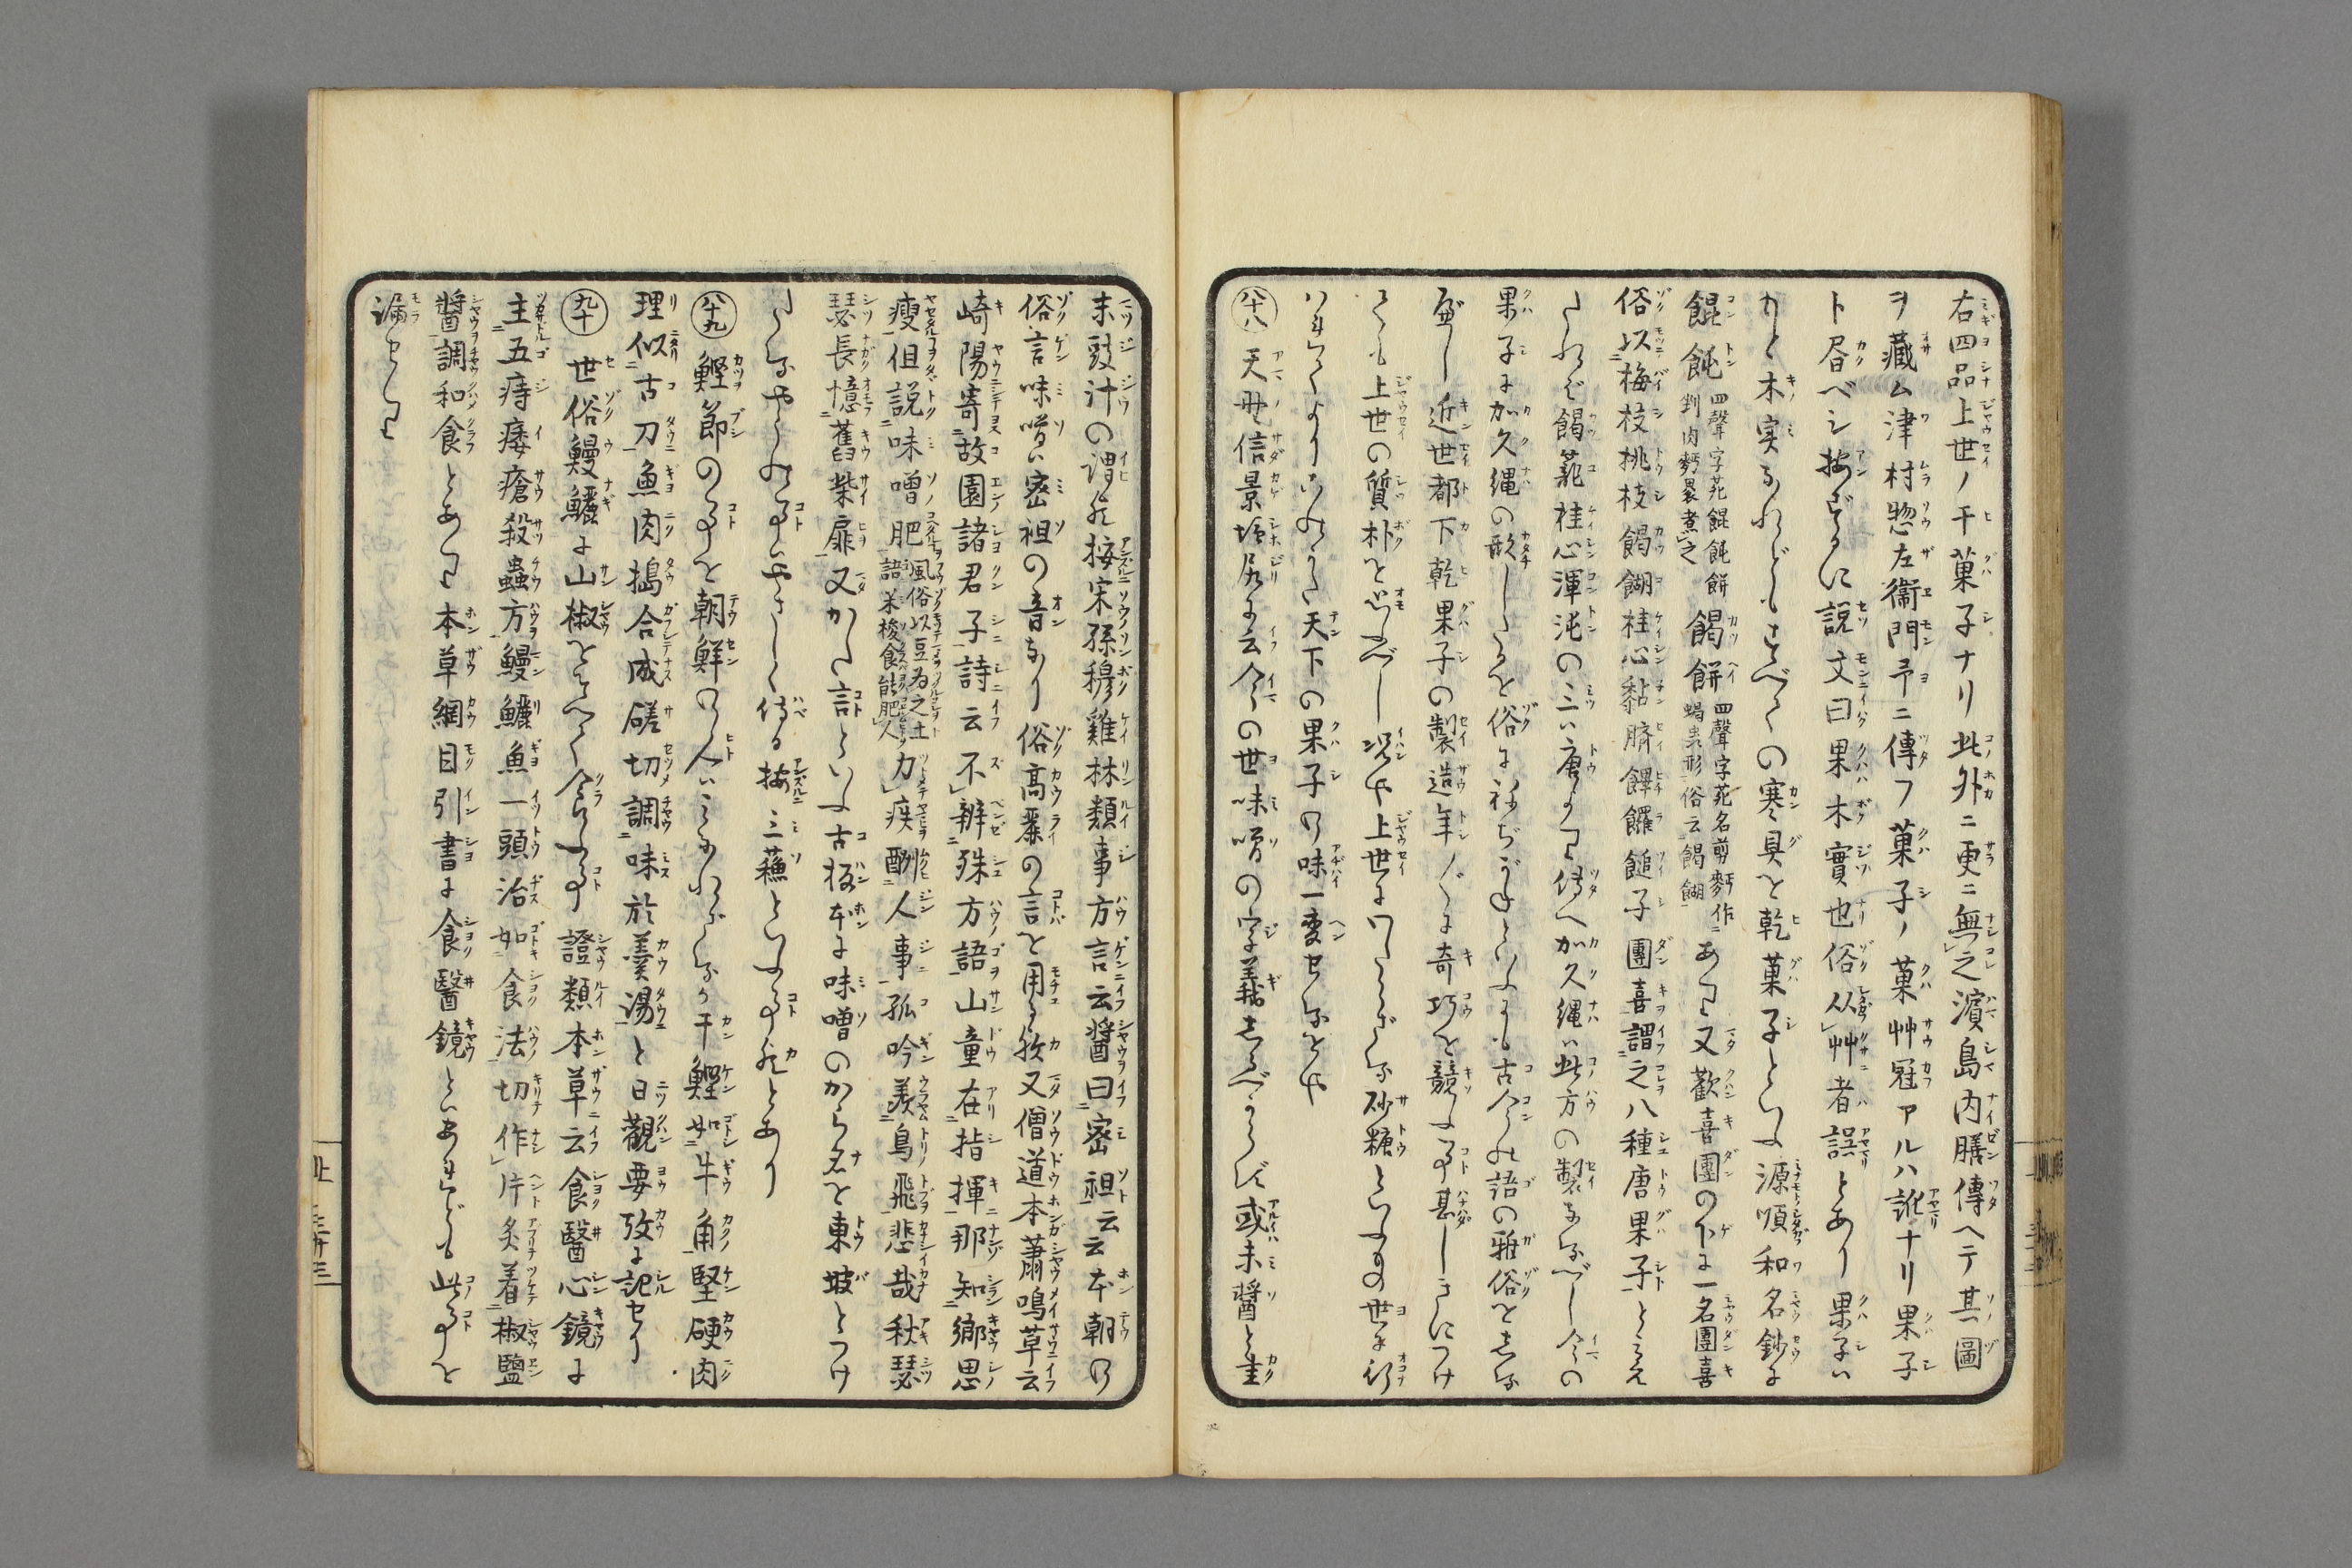 右四品上世ノ干菓子ナリ此外ニ更ニ無之濱島内膳傳ヘテ其圖
ヲ藏ム津村惣左衞門予ニ傳フ菓子ノ菓艸冠アルハ訛ナリ果子
ト屠ベシ按ずるに説文曰果木實也俗从艸者誤とあり果子ハ
もと木実なれどもすべての寒具を乾菓子といふ源順和名鈔に
餛飩四聲字苑餛飩餅剉肉麪裹煮之餲餅四聲字苑名煎麪作蝎虫形俗云餲餬あり又歡喜團の下に一名團喜
俗以梅枝桃枝餲餬桂心黏臍饆饠鎚子團喜謂之八種唐果子とみえ
たれど餲𩜶桂心渾沌の三ハ唐より傳へ加久縄ハ此方の製なるべし今の
果子に加久縄の形したるを俗にねぢがねといふにも古今の語の雅俗をしる
べし近世都下乾果子の製造年〱に奇巧を競ふ事甚しきにつけ
ても上世の質朴を思ふべし況や上世にハたらざる砂糖といふもの世に行
ハれてよりこのかた天下の果子の味一変せるをや
八十八 天野信景塩尻に云今の世味噌の字義しるべからず或未醤と書
末豉汁の謂歟按宋孫穆雞林類事方言云醤曰密祖云云本朝の
俗言味噌ハ密祖の音なり俗高麗の言を用る歟又僧道本蕭鳴草云
崎陽寄故園諸君子詩云不辨殊方語山童在指揮那知郷思
瘦但説味噌肥風俗以豆為之土語米梭食能肥人力疾酬人事孤吟羨鳥飛悲哉秋瑟
瑟長憶舊柴扉又かた言といふ古板本に味噌のから名を東坡とつけ
たるやうの事いやさしく侍る按三蘓といふ事歟とあり
八十九 鰹節の事を朝鮮の人ハしらざるか干鰹如牛角堅硬肉
理似古刀魚肉搗合成磋切調味於羹湯と日觀要攷に記せり
九十 世俗鰻鱺に山椒をそへて食ふ事證類本草云食醫心鏡に
主五痔瘻瘡殺蟲方鰻鱺魚一頭治如食法切作片炙着椒鹽
醤調和食とあり本草綱目引書に食醫鏡とハあれども此事を
漏せり